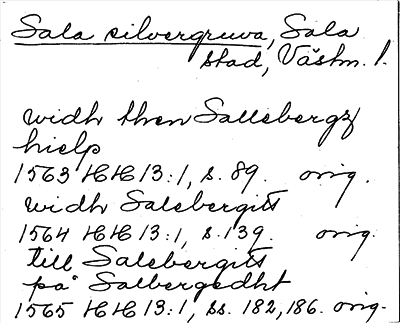 Sala silvergruva, Sala
stad, Västm. l.
widh then Sallebergz
hielp
1563 HH 13:1, s. 89. orig.
widh Salebergit
1564 HH 13:1, s. 139. orig.
till Salebergitt
på Salbergedht
1565 HH 13:1, ss. 182, 186. orig.